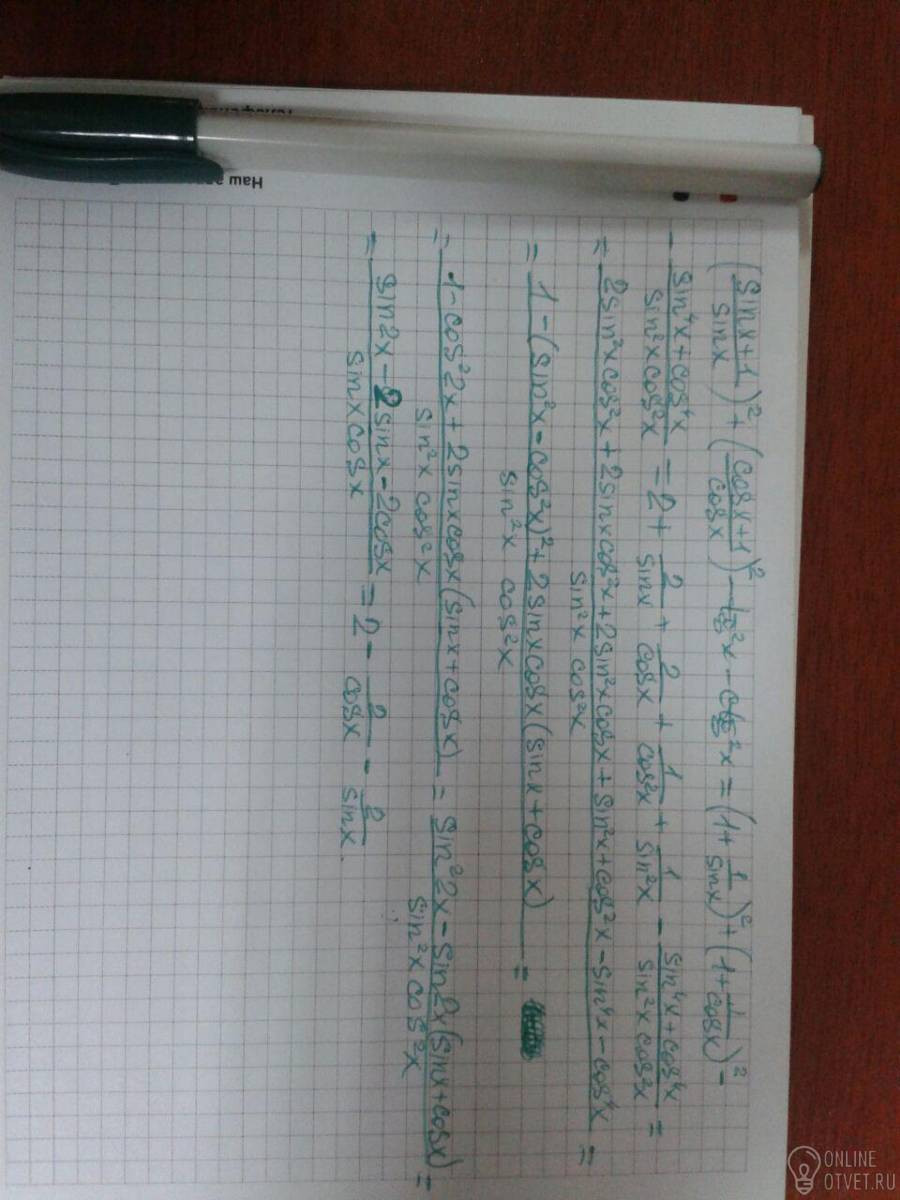 Наш а
((sinx+1)/sinx)² + ((cosx+1)/cosx)² - tg²x - ctg²x = (1 + 1/sinx)² + (1 + 1/cosx)² -
- (sin⁴x + cos⁴x)/(sin²x cos²x) = 2 + 2/sinx + 2/cosx + 1/cos²x + 1/sin²x - (sin⁴x + cos⁴x)/(sin²x cos²x) =
= (2sin²x cos²x + 2sinx cos²x + 2sin²x cosx + sin²x + cos²x - sin⁴x - cos⁴x)/(sin²x cos²x) =
= (1 - (sin²x - cos²x)² + 2sinx cosx (sinx + cosx))/(sin²x cos²x) =
= (1 - cos²2x + 2sinx cosx (sinx + cosx))/(sin²x cos²x) = (sin²2x - sin2x (sinx + cosx))/(sin²x cos²x) =
= (sin2x - 2sinx - 2cosx)/(sinx cosx) = 2 - 2/cosx - 2/sinx.
ONLINE
OTVET.RU